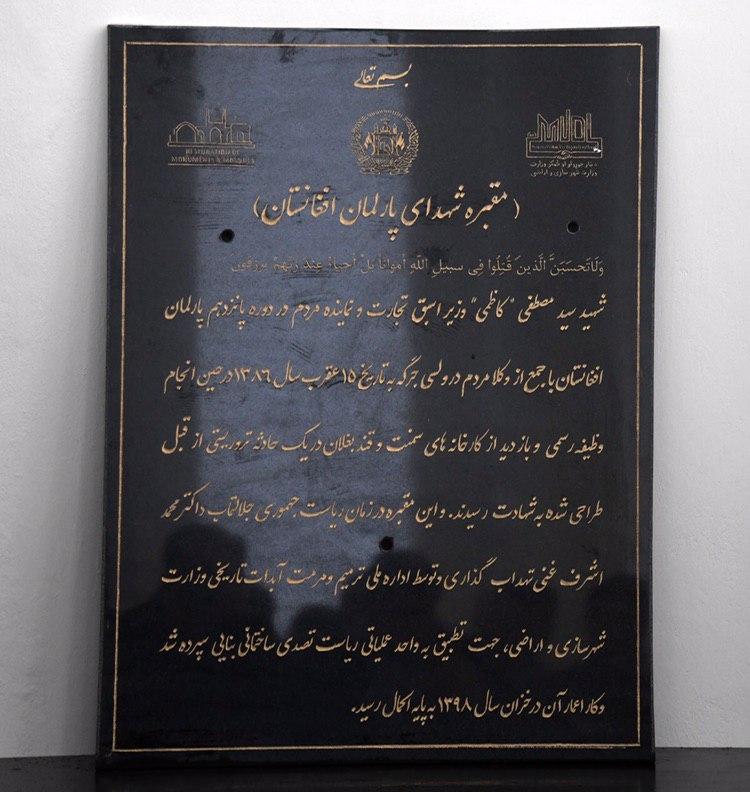 بسم تعالی
RESTORATION OF
MONUMENTS & MOSQUES
MUDL
د ښار جوړولو او ځمکو وزارت
وزارت شهر سازی و اراضی
(مقبره شهدای پارلمان افغانستان)
وَلَا تَحسَبَنَّ الَّذینَ قُتِلُوا فِی سبیلِ اللّهِ أمواتاً بَلْ أحیاءٌ عِندَ رَبِّهِمْ یرزقون
شهید سید مصطفی "کاظمی" وزیر اسبق تجارت و نماینده مردم در دوره پانزدهم پارلمان
افغانستان با جمع از وکلا مردم در ولسی جرگه به تاریخ ۱۵ عقرب سال ۱۳۸۶ در حین انجام
وظیفه رسمی و بازدید از کارخانه های سمنت و قند بغلان در یک حادثه تروریستی از قبل
طراحی شده به شهادت رسیدند. و این مقبره در زمان ریاست جمهوری جلالتاب داکتر محمد
اشرف غنی تهداب گذاری و توسط اداره ملی ترمیم و مرمت آبدات تاریخی وزارت
شهرسازی و اراضی، جهت تطبیق به واحد عملیاتی ریاست تصدی ساختمانی بنایی سپرده شد
و کار اعمار آن در خزان سال ۱۳۹۸ به پایه اکمال رسید.